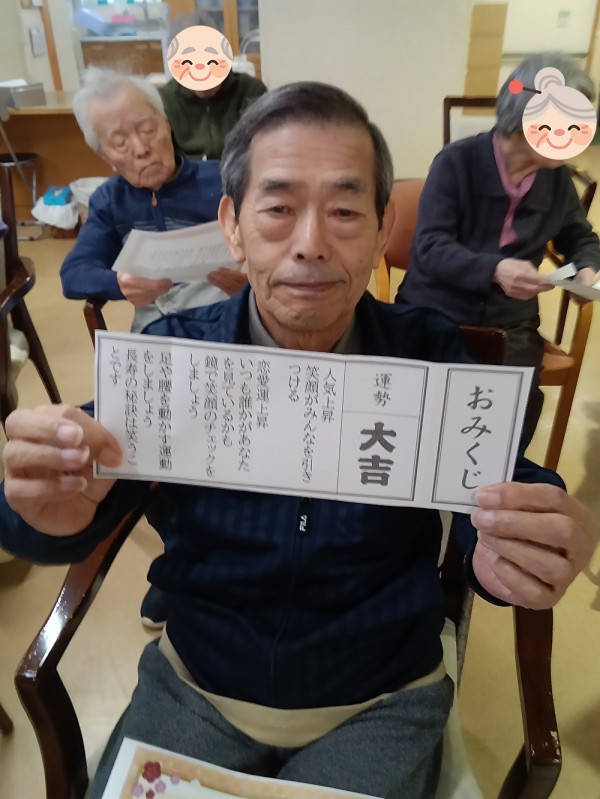 おみくじ
運勢 大吉
人気上昇
笑顔がみんなを引き
つける
恋愛運上昇
いつも誰かがあなた
を見ているかも
鏡で笑顔のチェックを
しましょう
足や腰を動かす運動
をしましょう
長寿の秘訣は笑うこ
とです
FILA